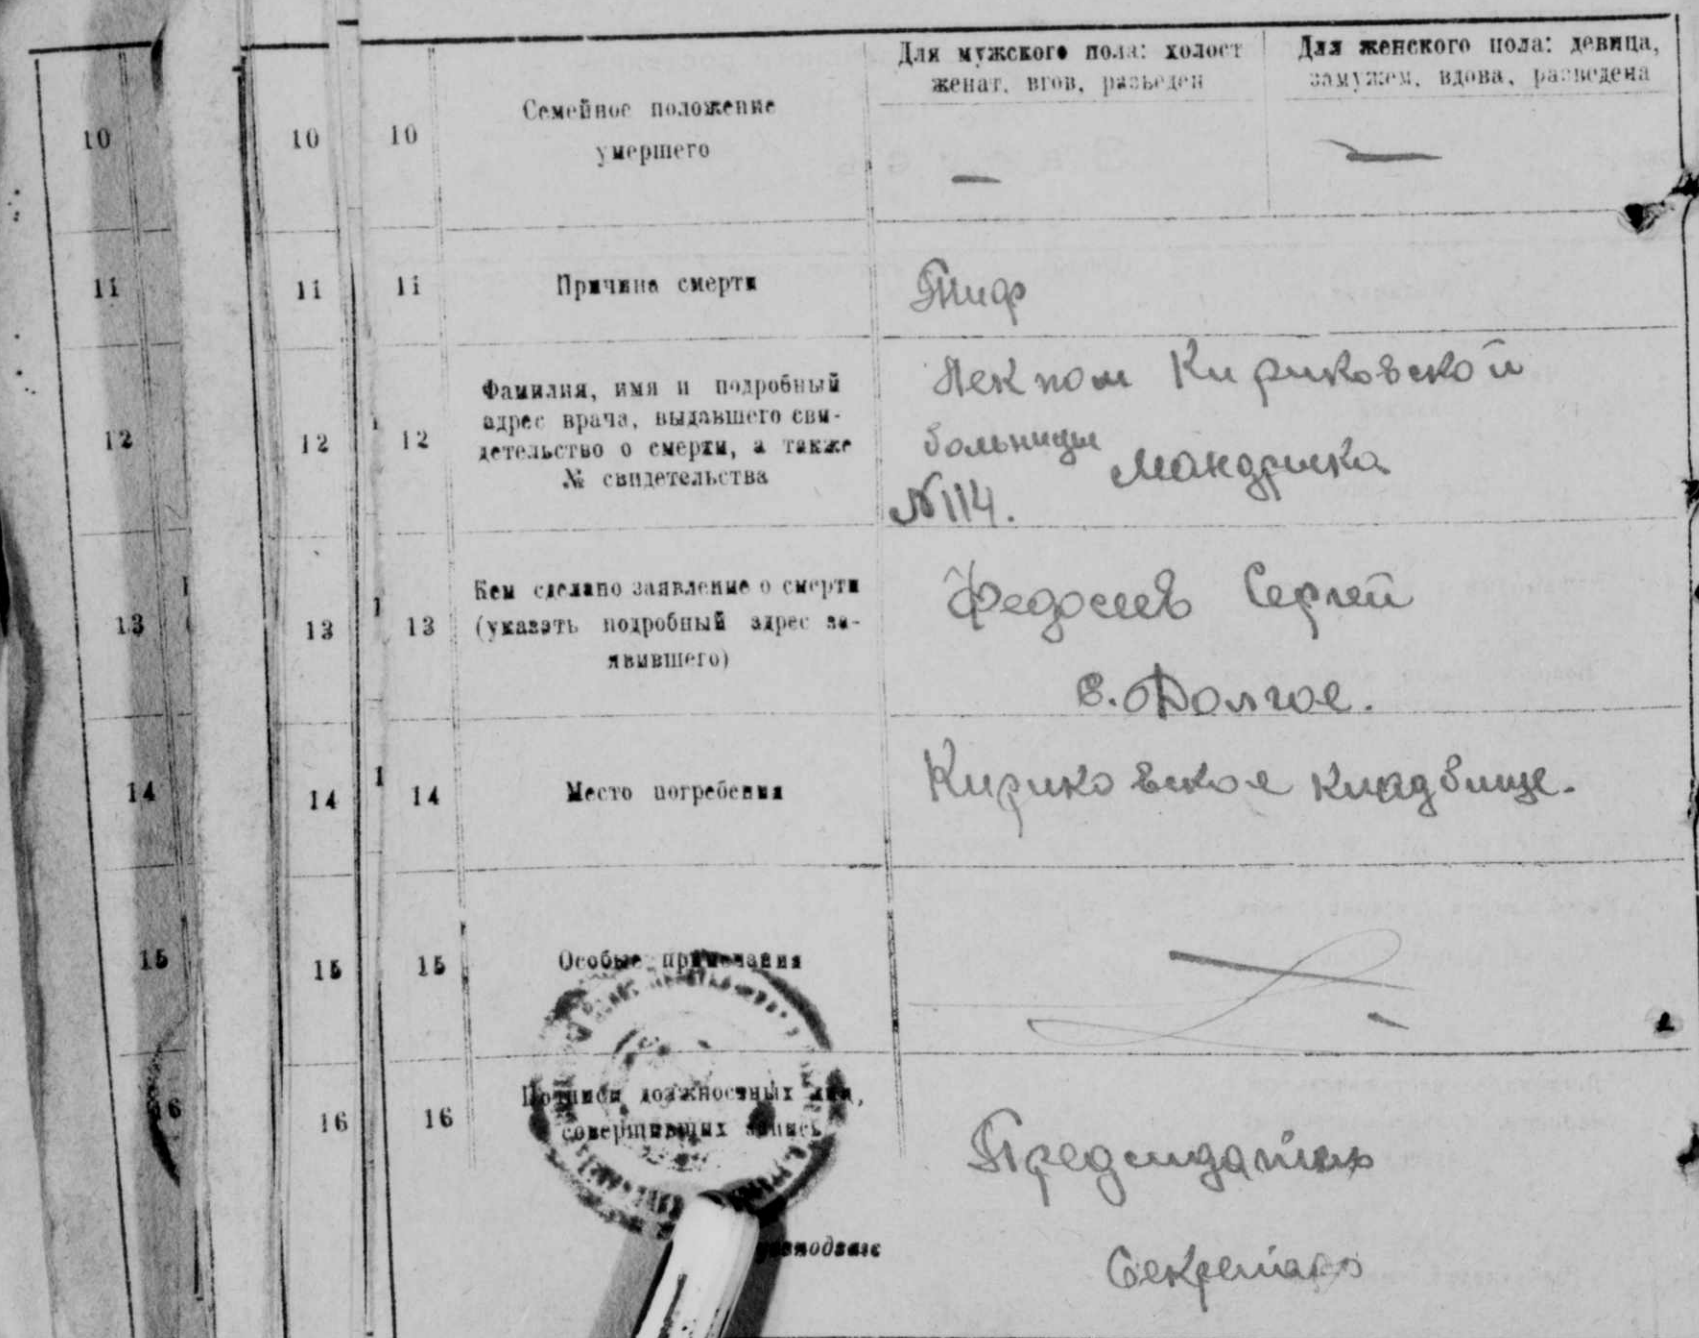 Для мужского пола: холост
женат, вдов, разведен
Для женского пола: девица,
замужем, вдова, разведена
10
10
10
Семейное положение
умершего
—
—
11
11
11
Причина смерти
Тиф
12
12
12
Фамилия, имя и подробный
адрес врача, выдавшего сви-
детельство о смерти, а также
№ свидетельства
Лекпом Кириковской
больницы
Мандрика
№ 114.
13
13
13
Кем сделано заявление о смерти
(указать подробный адрес за-
явившего)
Федосеев Сергей
с. Долгое.
14
14
14
Место погребения
Кириковское кладбище.
15
15
15
Особые примечания
16
16
16
Подписи должностных лиц,
совершивших запись
Председатель
Секретарь